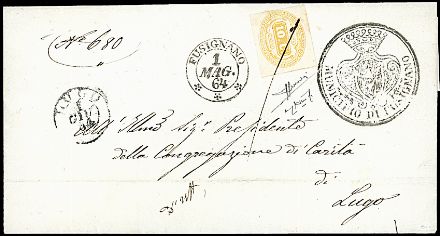 N° 680
FUSIGNANO
1
MAG.
64
10
MUNICIPIO DI FUSIGNANO
All' Illmo Sigr Presidente
della Congregazione di Carità
di
Lugo